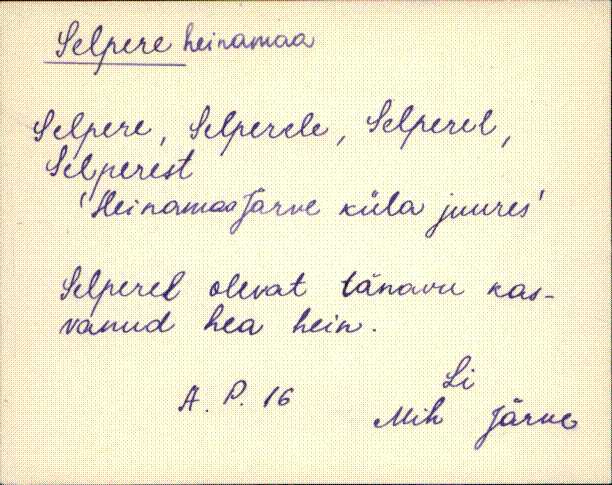 Selpere heinamaa
Selpere, Selperele, Selperel,
Selperest
'Heinamaa Järve küla juures'
Selperel olevat tänavu kas-
vanud hea hein.
Li
A. P. 16
Mih Järve